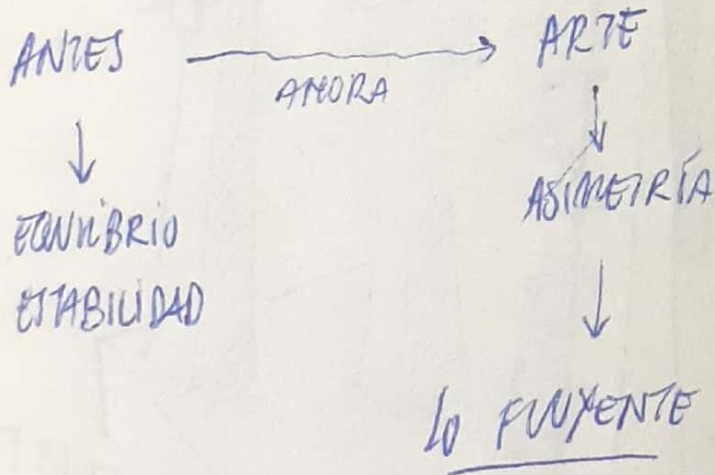 ANTES
ARTE
AHORA
EQUILIBRIO
ESTABILIDAD
ASIMETRÍA
lo FLUYENTE